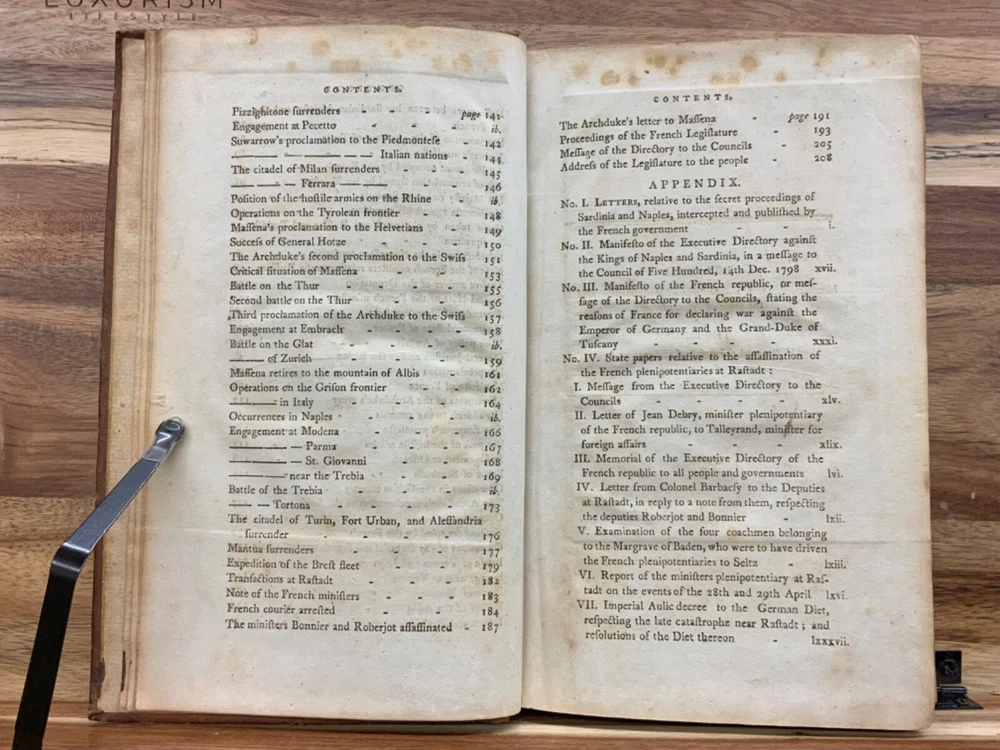 LUXURISM
LIFESTYLE
CONTENTS.
Pizzighitone ſurrenders - - - page 141
Engagement at Pecetto - - - ib.
Suwarrow's proclamation to the Piedmonteſe 142
——— — — — Italian nations 144
The citadel of Milan ſurrenders - - 145
——— — Ferrara —— - - 146
Poſition of the hoſtile armies on the Rhine ib.
Operations on the Tyrolean frontier - - 148
Maſſena's proclamation to the Helvetians 149
Succeſs of General Hotze - - - 150
The Archduke's ſecond proclamation to the Swiſs 151
Critical ſituation of Maſſena - - - 153
Battle on the Thur - - - - 155
Second battle on the Thur - - - 156
Third proclamation of the Archduke to the Swiſs 157
Engagement at Embrach - - - 158
Battle on the Glat - - - - ib.
—— of Zurich - - - - 159
Maſſena retires to the mountain of Albis - 161
Operations on the Griſon frontier - - 162
——— in Italy - - - - 164
Occurrences in Naples - - - - ib.
Engagement at Modena - - - 166
——— — Parma - - - 167
——— — St. Giovanni - - 168
——— near the Trebia - - 169
Battle of the Trebia - - - - ib.
— — Tortona - - - - 173
The citadel of Turin, Fort Urban, and Aleſſandria
ſurrender - - - - 176
Mantua ſurrenders - - - - 177
Expedition of the Breſt fleet - - - 179
Tranſactions at Raſtadt - - - 182
Note of the French miniſters - - - 183
French courier arreſted - - - 184
The miniſters Bonnier and Roberjot aſſaſſinated - 187
CONTENTS.
The Archduke's letter to Maſſena - page 191
Proceedings of the French Legiſlature - 193
Meſſage of the Directory to the Councils - 205
Addreſs of the Legiſlature to the people - 208
APPENDIX.
No. I. LETTERS, relative to the ſecret proceedings of
Sardinia and Naples, intercepted and publiſhed by
the French government - - i.
No. II. Manifeſto of the Executive Directory againſt
the Kings of Naples and Sardinia, in a meſſage to
the Council of Five Hundred, 14th Dec. 1798 xvii.
No. III. Manifeſto of the French republic, or meſ-
ſage of the Directory to the Councils, ſtating the
reaſons of France for declaring war againſt the
Emperor of Germany and the Grand-Duke of
Tuſcany - - - - - xxxi.
No. IV. State papers relative to the aſſaſſination of
the French plenipotentiaries at Raſtadt :
I. Meſſage from the Executive Directory to the
Councils - - - - xlv.
II. Letter of Jean Debry, miniſter plenipotentiary
of the French republic, to Talleyrand, miniſter for
foreign affairs - - - xlix.
III. Memorial of the Executive Directory of the
French republic to all people and governments lvi.
IV. Letter from Colonel Barbacſy to the Deputies
at Raſtadt, in reply to a note from them, reſpecting
the deputies Roberjot and Bonnier - lxii.
V. Examination of the four coachmen belonging
to the Margrave of Baden, who were to have driven
the French plenipotentiaries to Seltz - lxiii.
VI. Report of the miniſters plenipotentiary at Raſ-
tadt on the events of the 28th and 29th April lxvi.
VII. Imperial Aulic decree to the German Diet,
reſpecting the late cataſtrophe near Raſtadt ; and
reſolutions of the Diet thereon - lxxxvii.